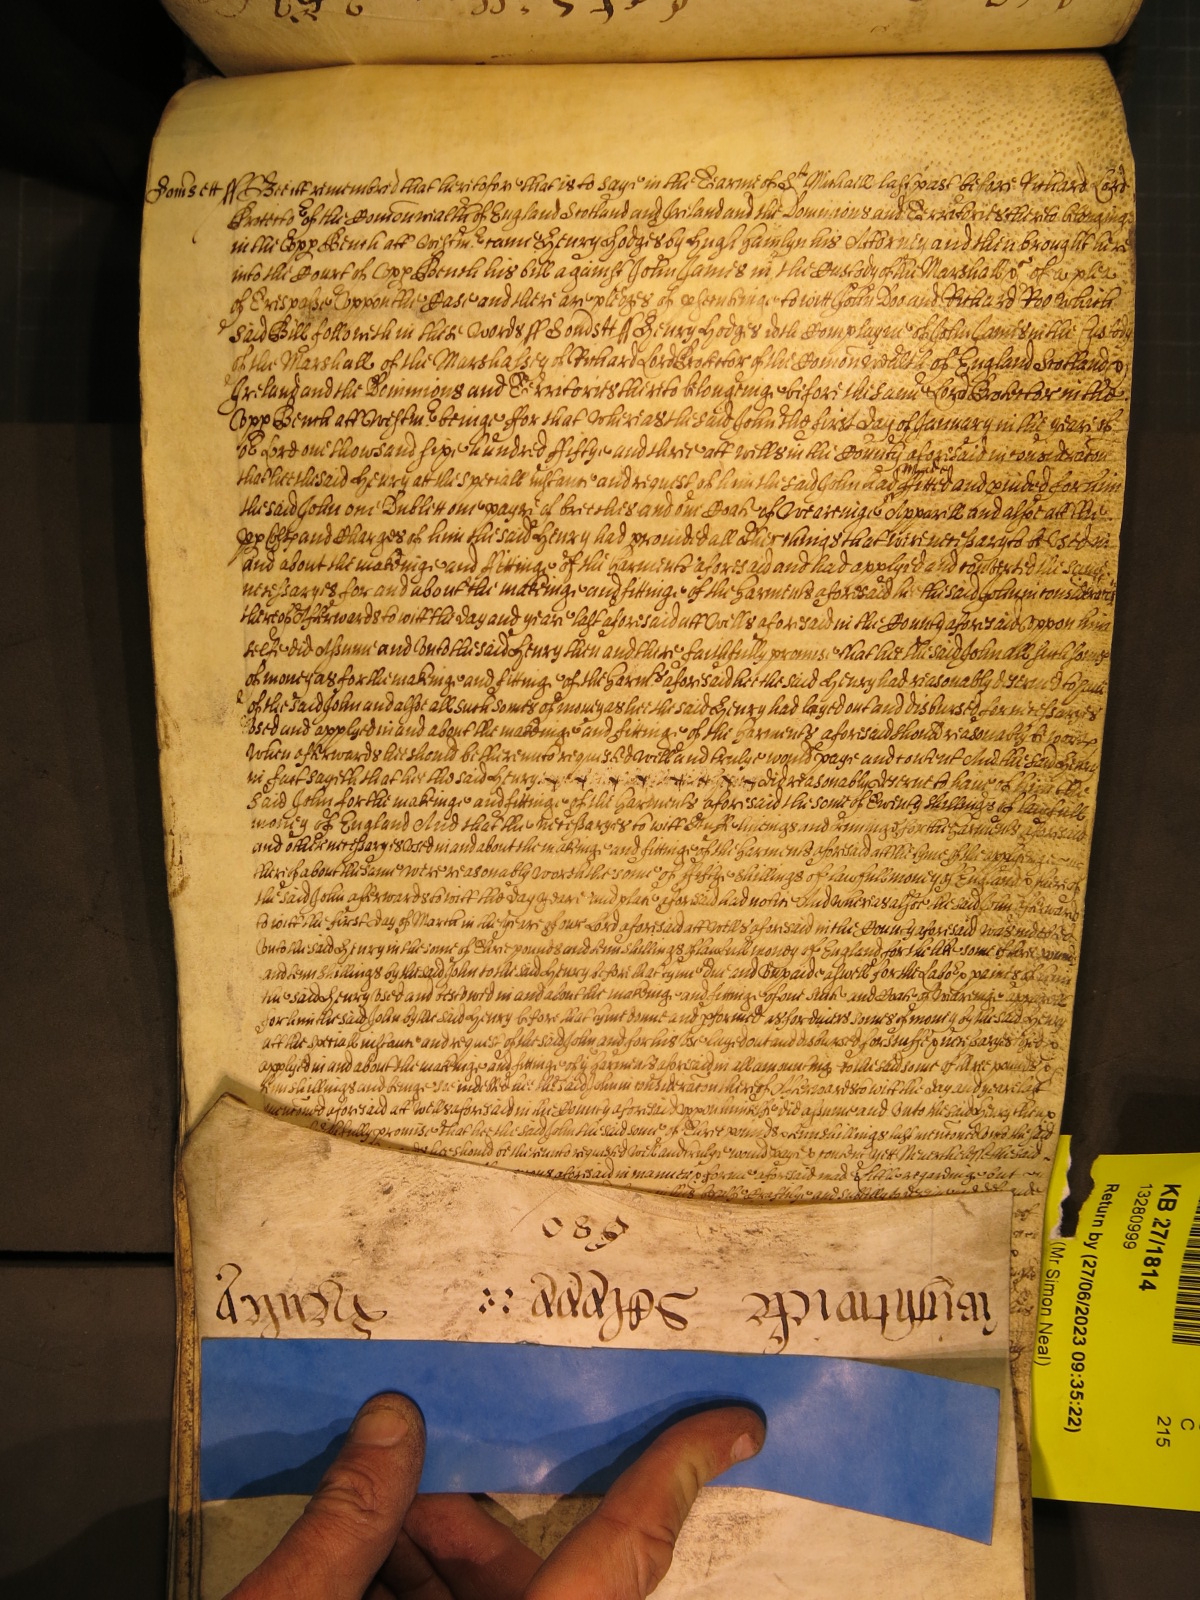 Somsett ss Bee it remembred that heretofore that is to saye in the Tearme of St Michaell last past before Richard Lord
Protector of the Comonwealth of England Scotland and Ireland and the Dominions and Territories thereto belonging
in the Upp Bench att Westm came Henry Hodges by Hugh Hamlyn his Attorney and then brought here
into the Court of Upp Bench his bill against John James in the Custody of the Marshall &c of a plea
of Trespasse Uppon the Case and there are pledges of prosecutinge to witt John Doo and Richard Roo which
said Bill followeth in these words ss Somsett ss Henry Hodges doth Complayne of John James in the Custody
of the Marshall of the Marshalsey of Richard Lord Protector of the Comonwealth of England Scotland &
Ireland and the Dominions and Territories thereto belonginge before the same Lord Protector in the
Upp Bench att Westm beinge For that Whereas the said John the first Day of January in the yeare of
or Lord one thowsand six hundred fiftye and three att wells in the County aforesaid in consideracon
that hee the said Henry at the speciall instance and request of him the said John had made fitted and finished for him
the said John one Dublett one payre of breeches and one Coate of Weareinge Apparell and alsoe att the
Costs and Charges of him the said Henry had provided all other things that were necessary to be Used in
and about the makeinge and fittinge of the Garments aforesaid and had applyed and converted the same
necessaryes for and about the makeinge and fittinge of the Garments aforesaid hee the said John in consideracon
thereof Afterwards to witt the Day and yeare last aforesaid att Wells aforesaid in the County aforesaid Uppon him
selfe did Assume and Unto the said Henry then and there faithfully promise that hee the said John all such somes
of money as for the makeinge and fittinge of the Garmts aforesaid hee the said Henry had reasonably deserved to have
of the said John and alsoe all such somes of money as hee the said Henry had layed out and disbursed for necessaryes
Used and applyed in and about the makeinge and fittinge of the Garments aforesaid should reasonably be worth
when afterwards hee should be thereunto required well and truly would paye and content And the said Henry
in fact sayeth that hee the said Henry did reasonably deserve to have of him the
said John for the makeinge and fittinge of the Garments aforesaid the some of Twenty shillings of lawfull
money of England And that the necessaryes to witt Stuffe linings and for the Garments aforesaid
and other necessaryes Used in and about the makeinge and fittinge of the Garments aforesaid att the tyme of the applyinge
thereof about the same were reasonably worth the some of fiftye shillings of lawfull money of England whereof
the said John afterwards to witt the Day yeare and place aforesaid had notice And whereas alsoe the said John afterwards
to witt the first Day of March in the yeare of our Lord aforesaid att Wells aforesaid in the County aforesaid was indebted
Unto the said Henry in the some of Three pounds and tenn shillings of lawfull money of England for the like some of three pounds
and tenn shillings by the said John to the said Henry before that tyme Due and Unpaide aswell for the labor & paines
the said Henry Used and bestowed in and about the makeinge and fittinge of one Sute and Coate of Weareinge apparell
for him the said John by the said Henry before that tyme donne and pformed as for divers somes of money by the said Henry
att the speciall instance and request of the said John and for his Use layed out and disbursed for stuffe & necessaryes Used &
applyed in and about the makeinge and fittinge of the Garments aforesaid in all amountinge to the said some of three pounds &
tenn shillings and beinge soe indebted hee the said John in consideracon thereof Afterwards to witt the day and yeare last
mentioned aforesaid att Wells aforesaid in the County aforesaid uppon himselfe did assume and Unto the said Henry then &
faithfully promise that hee the said John the said some of Three pounds & tenn shillings last mentioned unto the said
hee should be thereunto required well and truly would paye & content Yet Neverthelesse the said
aforesaid in manner & forme aforesaid made little regardinge but
and subtilly
680
Wightwicke Schypp Henley
KB 27/1814
13280999
Return by (27/06/2023 09:35:22)
(Mr Simon Neal)
C
215